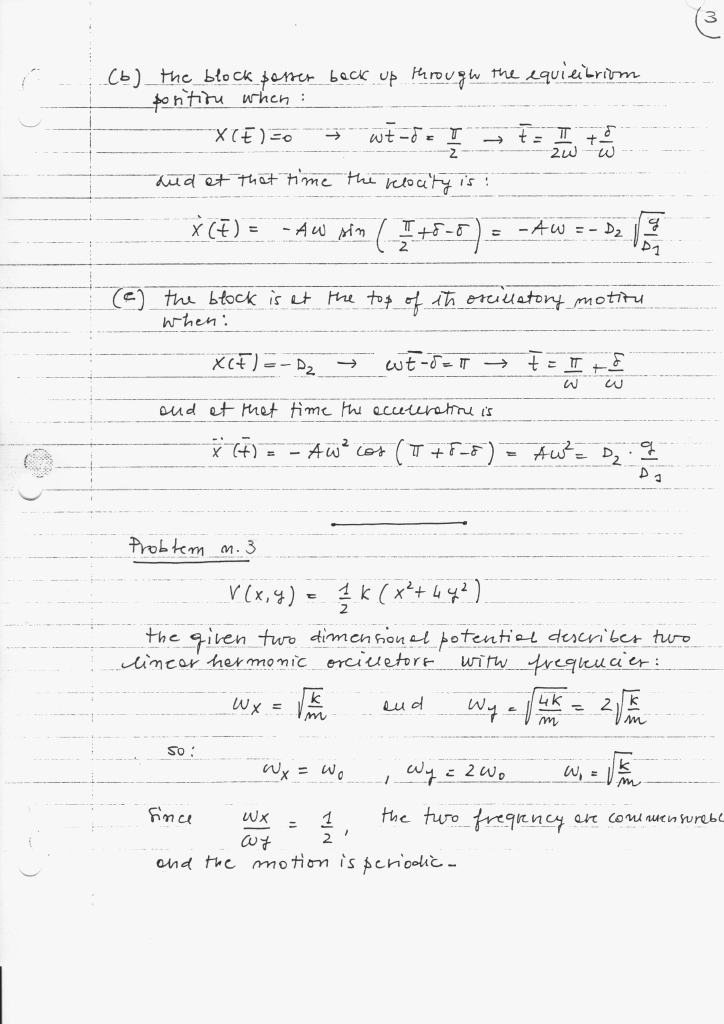 3
(b) the block passes back up through the equilibrium
position when :
X(t̄)=0 → ωt̄-δ = π/2 → t̄ = π/2ω + δ/ω
and at that time the velocity is :
ẋ(t̄) = -Aω sin (π/2 +δ-δ) = -Aω = -D₂ √(g/D₁)
(c) the block is at the top of its oscillatory motion
when :
X(t̄) = -D₂ → ωt̄-δ = π → t̄ = π/ω + δ/ω
and at that time the acceleration is
ẍ(t̄) = -Aω² cos (π +δ-δ) = Aω² = D₂ · g/D₁
Problem n. 3
V(x,y) = 1/2 k (x²+4y²)
the given two dimensional potential describes two
linear harmonic oscillators with frequencies :
ωx = √(k/m) and ωy = √(4k/m) = 2√(k/m)
so :
ωx = ω₀ , ωy = 2ω₀ ω₁ = √(k/m)
Since ωx/ωy = 1/2 , the two freqency are commensurabl
and the motion is periodic -